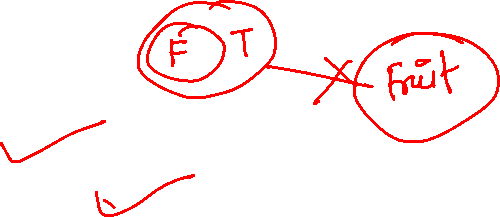 F T
Fruit